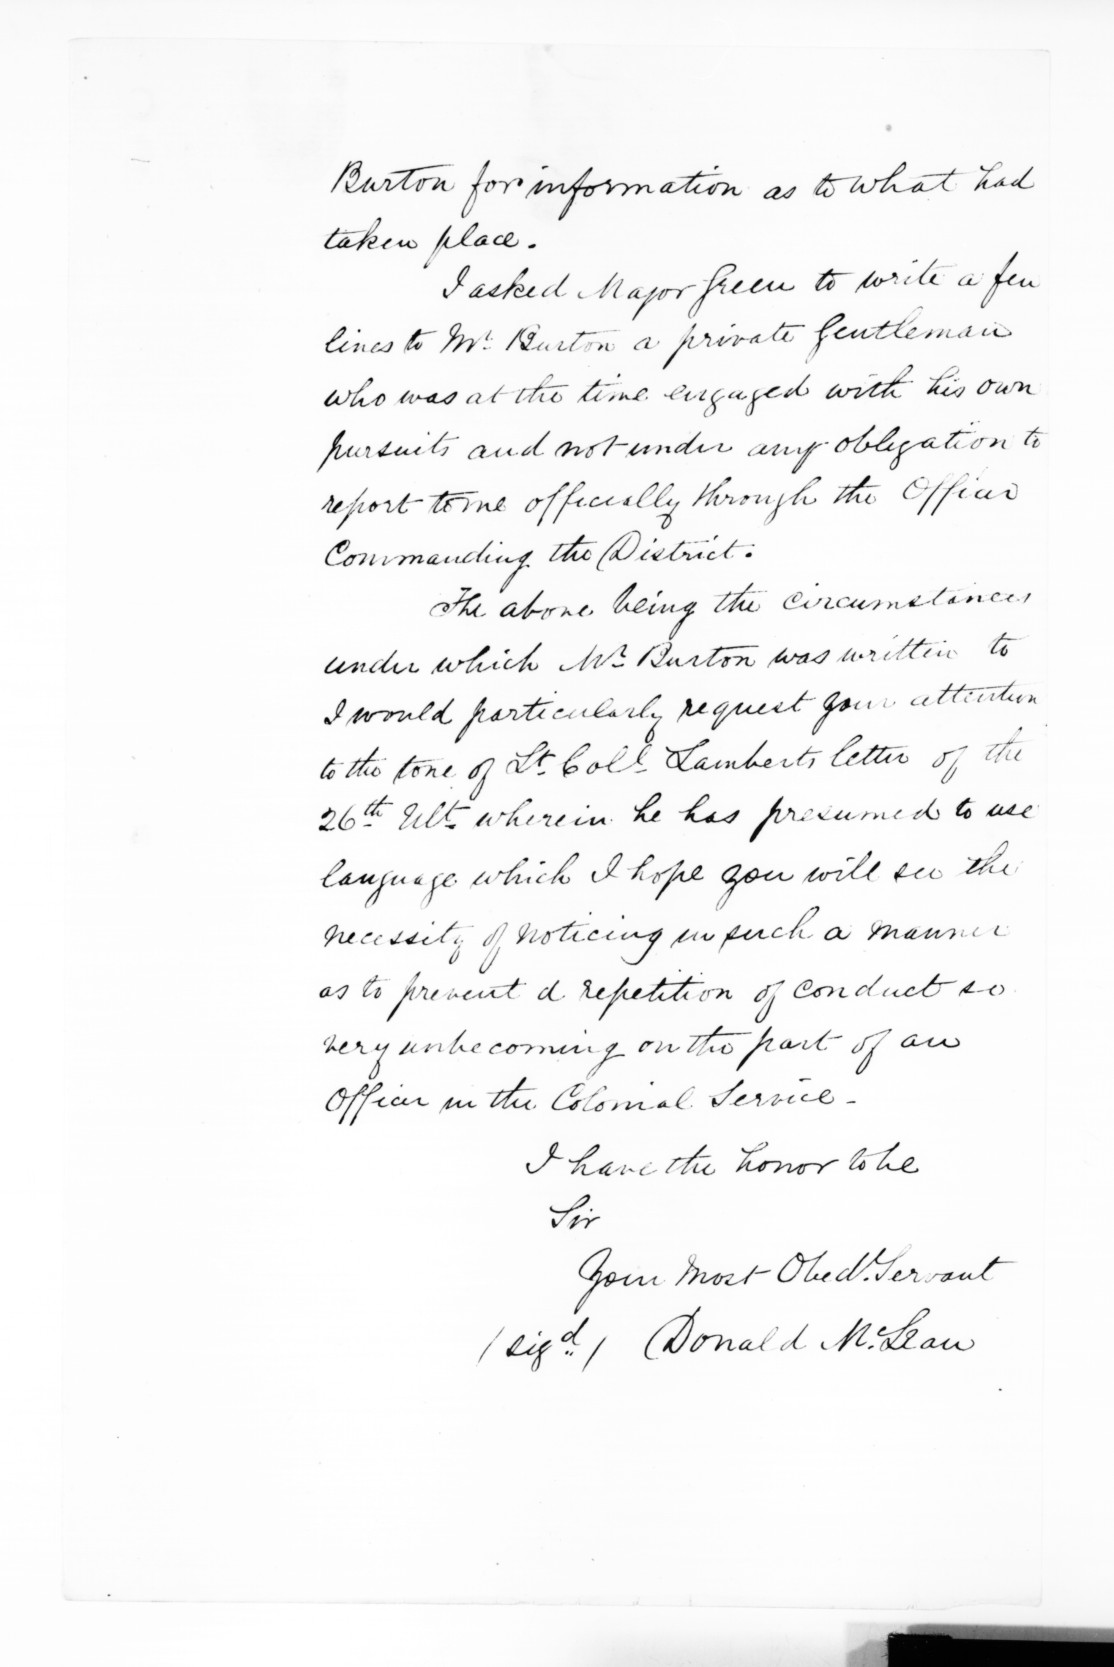 Burton for information as to what had
taken place.
I asked Major Green to write a few
lines to Mr. Burton a private Gentleman
who was at the time engaged with his own
pursuits and not under any obligation to
report to me officially through the Officer
Commanding the District.
The above being the circumstances
under which Mr. Burton was written to
I would particularly request your attention
to the tone of Lt. Coll. Lamberts letter of the
26th Ult. wherein he has presumed to use
language which I hope you will see the
necessity of noticing in such a manner
as to prevent a repetition of conduct so
very unbecoming on the part of an
Officer in the Colonial Service -
I have the honor to be
Sir
Your Most Obedt. Servant
/ sigd. / Donald McLean